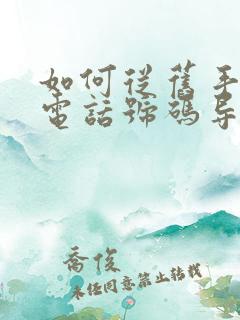 如何從舊手
電話號碼导
喬俊
未经同意禁止转载